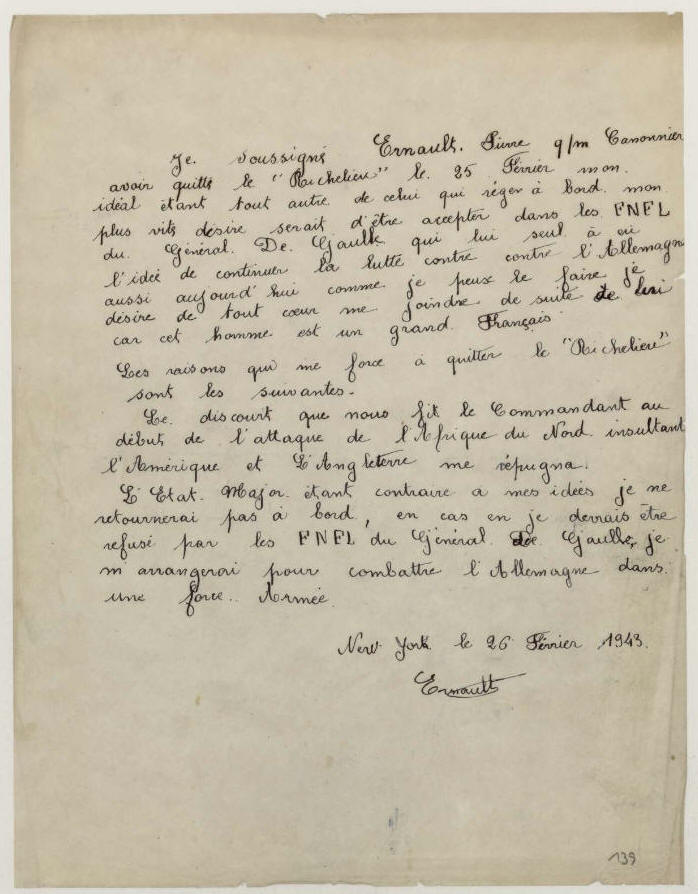 Je. soussigné Ernault. Pierre q/m Canonnier
avoir quitté le "Richelieu" le. 25 Février mon.
idéal étant tout autre de celui qui réger à bord. mon
plus vits désire serait d'être accepter dans les FNFL
du. Général. De. Gaulle qui lui seul à eu
l'idée de continuer la lutte contre contre l'Allemagne
aussi aujourd'hui comme je peux le faire je
désire de tout cœur me joindre de suite de lui
car cet homme est un grand Français
Les raisons qui me force à quitter le "Richelieu"
sont les suivantes.
Le. discourt que nous fit le Commandant au
début de l'attaque de l'Afrique du Nord. insultant
l'Amérique et L'Angleterre me répugna.
L'Etat. Major. étant contraire a mes idées je ne
retournerai pas à bord, en cas en je devrais être
refusé par les FNFL du Général De Gaulle, je
m'arrangerai pour combattre l'Allemagne dans.
une force.. Armée.
New York. le 26 Février 1943.
Ernault
139